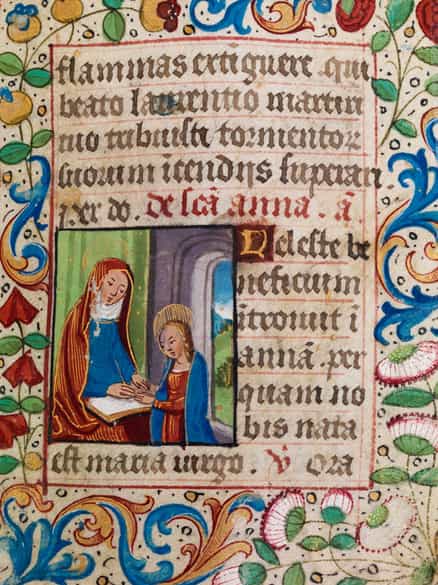 flammas extiguere qui
beato laurentio martiri
tuo tribuisti tormentoꝝ
suorum īcendijs superare.
per do. de scā anna. ā
Celeste be
neficium
ītrouit ī
annā per
quam no
bis nata
est maria uirgo. ꝟ Ora